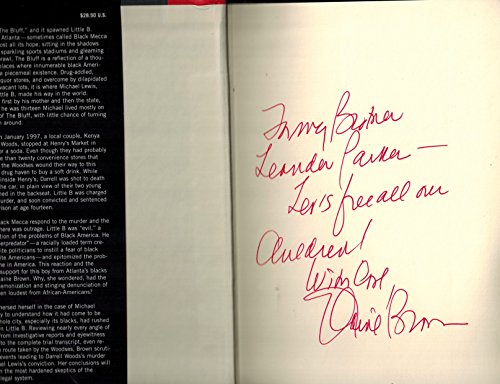 $28.50 U.S.
The Bluff," and it spawned Little B.
Atlanta—sometimes called Black Mecca
ost all its hope, sitting in the shadows
sparkling sports stadiums and gleaming
rawl, The Bluff is a reflection of a thou-
places where innumerable black Ameri-
a piecemeal existence. Drug-addled,
quor stores, and overcome by dilapidated
vacant lots, it is where Michael Lewis,
tle B, made his way in the world.
first by his mother and then the state,
he was thirteen Michael lived mostly on
of The Bluff, with little chance of turning
n around.
n January 1997, a local couple, Kenya
Woods, stopped at Henry's Market in
r a soda. Even though they had probably
e than twenty convenience stores that
the Woodses wound their way to this
drug haven to buy a soft drink. While
inside Henry's, Darrell was shot to death
he car, in plain view of their two young
ned in the backseat. Little B was charged
urder, and soon convicted and sentenced
rison at age fourteen.
ack Mecca respond to the murder and the
here was outrage. Little B was "evil," a
tion of the problems of Black America. He
erpredator"—a racially loaded term cre-
ite politicians to instill a fear of black
ite Americans—and epitomized the prob-
me in America. This reaction and the
support for this boy from Atlanta's blacks
laine Brown. Why, she wondered, had the
emonization and stinging denunciation of
en loudest from African-Americans?
mersed herself in the case of Michael
y to understand how it had come to be
hole city, especially its blacks, had rushed
n Little B. Reviewing nearly every angle of
from investigative reports and eyewitness
to the complete trial transcript, even re-
route taken by the Woodses, Brown scruti-
events leading to Darrell Woods's murder
ael Lewis's conviction. Her conclusions will
en the most hardened skeptics of the
legal system.
For my Brother
Leander Parker —
Let's free all our
Children!
With Love
Elaine Brown